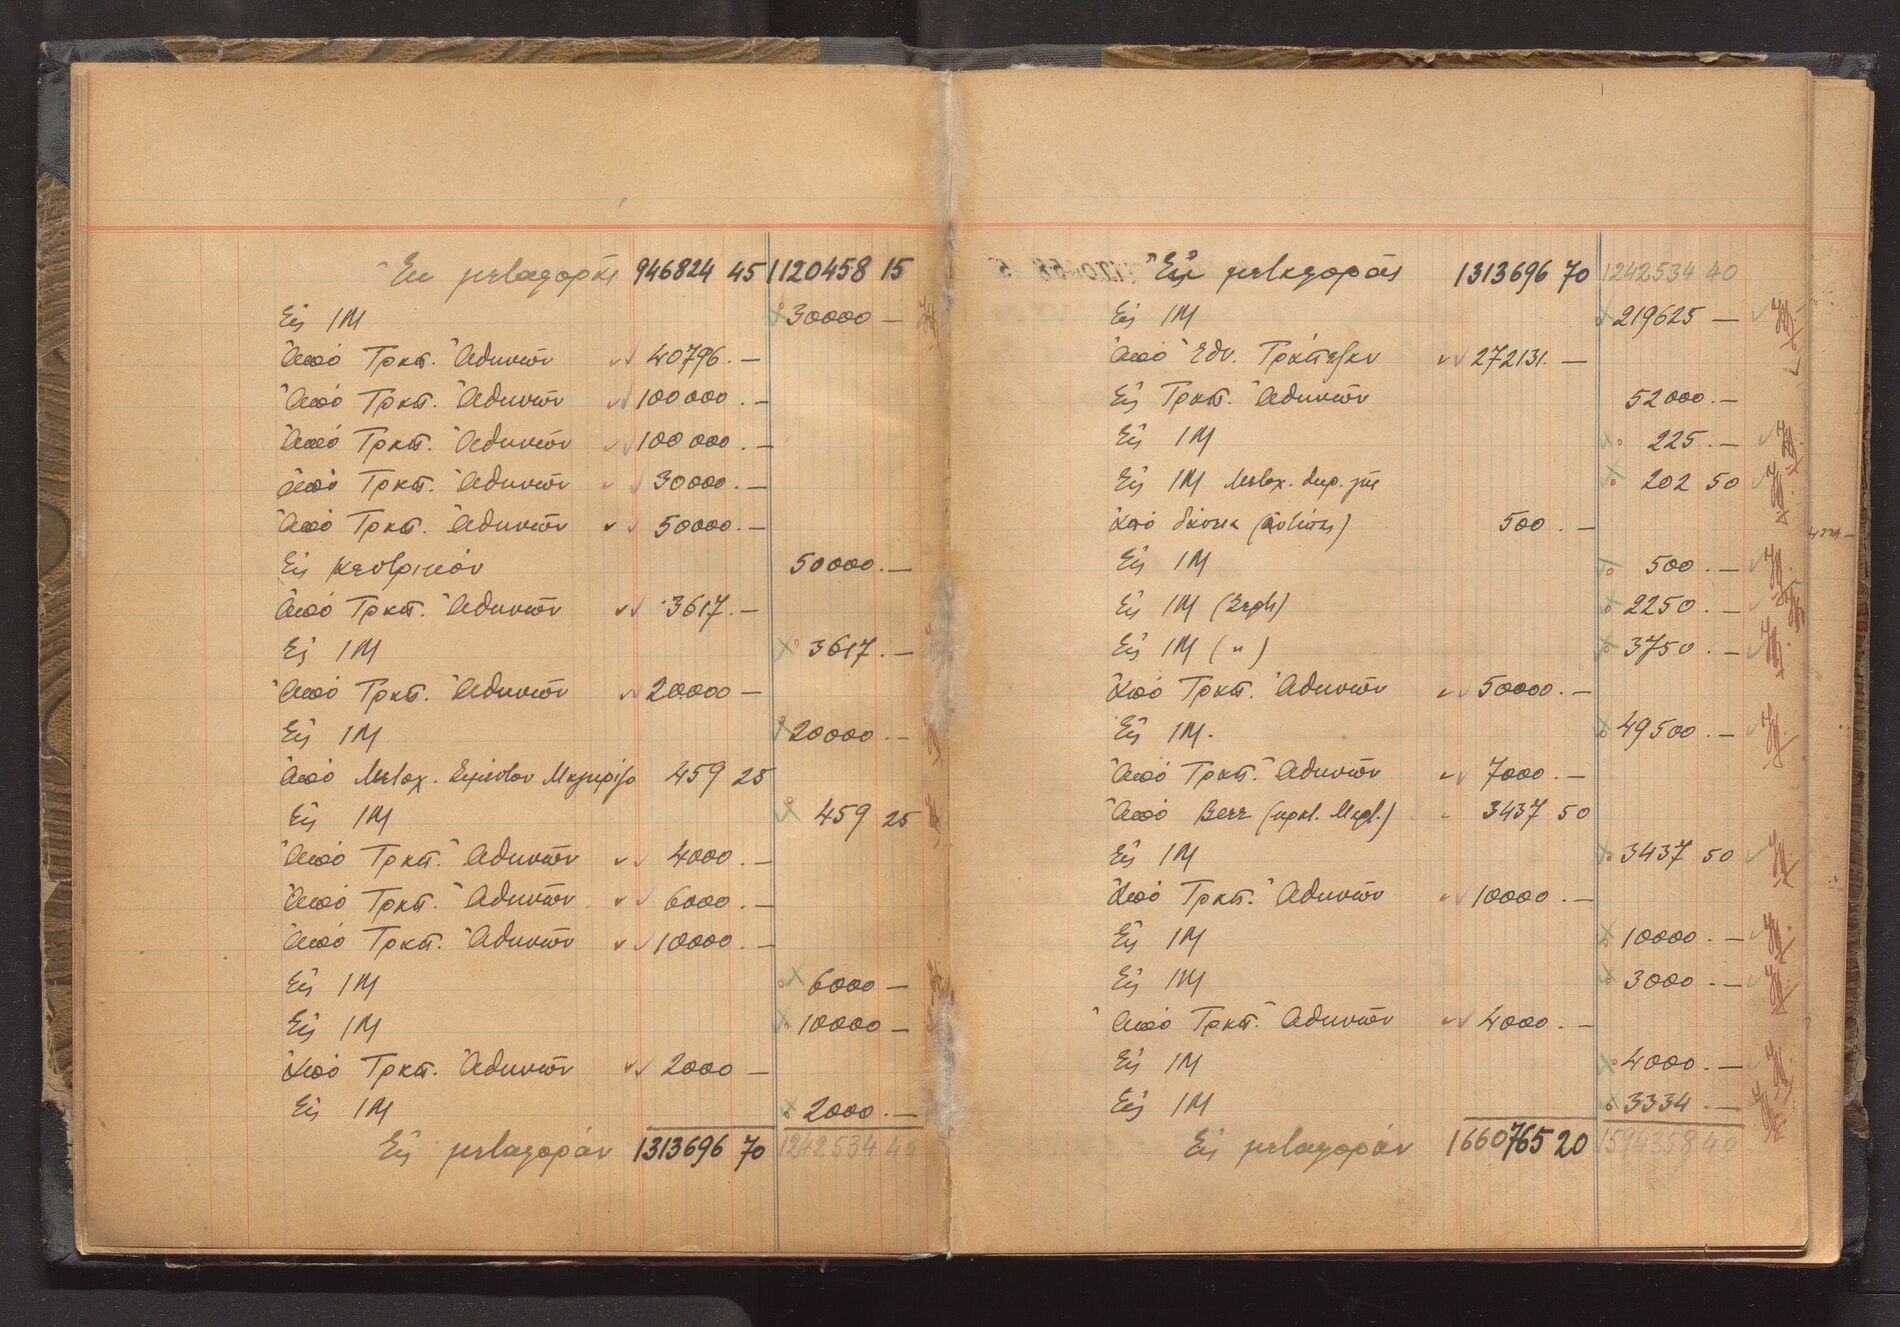 Ἐκ μεταφορᾶς 946824 45 1120458 15
Εἰς 1Μ 30000 —
Ἀπό Τραπ. Ἀθηνῶν 40796. —
Ἀπό Τραπ. Ἀθηνῶν 100000. —
Ἀπό Τραπ. Ἀθηνῶν 100000. —
Ἀπό Τραπ. Ἀθηνῶν 30000. —
Ἀπό Τραπ. Ἀθηνῶν 50000. —
Εἰς Κεντρικόν 50000. —
Ἀπό Τραπ. Ἀθηνῶν 3617. —
Εἰς 1Μ 3617. —
Ἀπό Τραπ. Ἀθηνῶν 20000 —
Εἰς 1Μ 20000. —
Ἀπό Μετοχ. 459 25
Εἰς 1Μ 459 25
Ἀπό Τραπ. Ἀθηνῶν 4000. —
Ἀπό Τραπ. Ἀθηνῶν 6000. —
Ἀπό Τραπ. Ἀθηνῶν 10000. —
Εἰς 1Μ 6000 —
Εἰς 1Μ 10000 —
Ἀπό Τραπ. Ἀθηνῶν 2000 —
Εἰς 1Μ 2000. —
Εἰς μεταφοράν 1313696 70 1242534 40
Ἐκ μεταφορᾶς 1313696 70 1242534 40
Εἰς 1Μ 219625 —
Ἀπό Ἐθν. Τράπεζαν 272131. —
Εἰς Τραπ. Ἀθηνῶν 52000. —
Εἰς 1Μ 225. —
Εἰς 1Μ Μετοχ. 202 50
Ἀπό 500. —
Εἰς 1Μ 500. —
Εἰς 1Μ 2250. —
Εἰς 1Μ ( " ) 3750. —
Ἀπό Τραπ. Ἀθηνῶν 50000. —
Εἰς 1Μ. 49500. —
Ἀπό Τραπ. Ἀθηνῶν 7000. —
Ἀπό 3437 50
Εἰς 1Μ 3437 50
Ἀπό Τραπ. Ἀθηνῶν 10000. —
Εἰς 1Μ 10000. —
Εἰς 1Μ 3000. —
Ἀπό Τραπ. Ἀθηνῶν 4000. —
Εἰς 1Μ 4000. —
Εἰς 1Μ 3334. —
Εἰς μεταφοράν 1660765 20 1594358 40